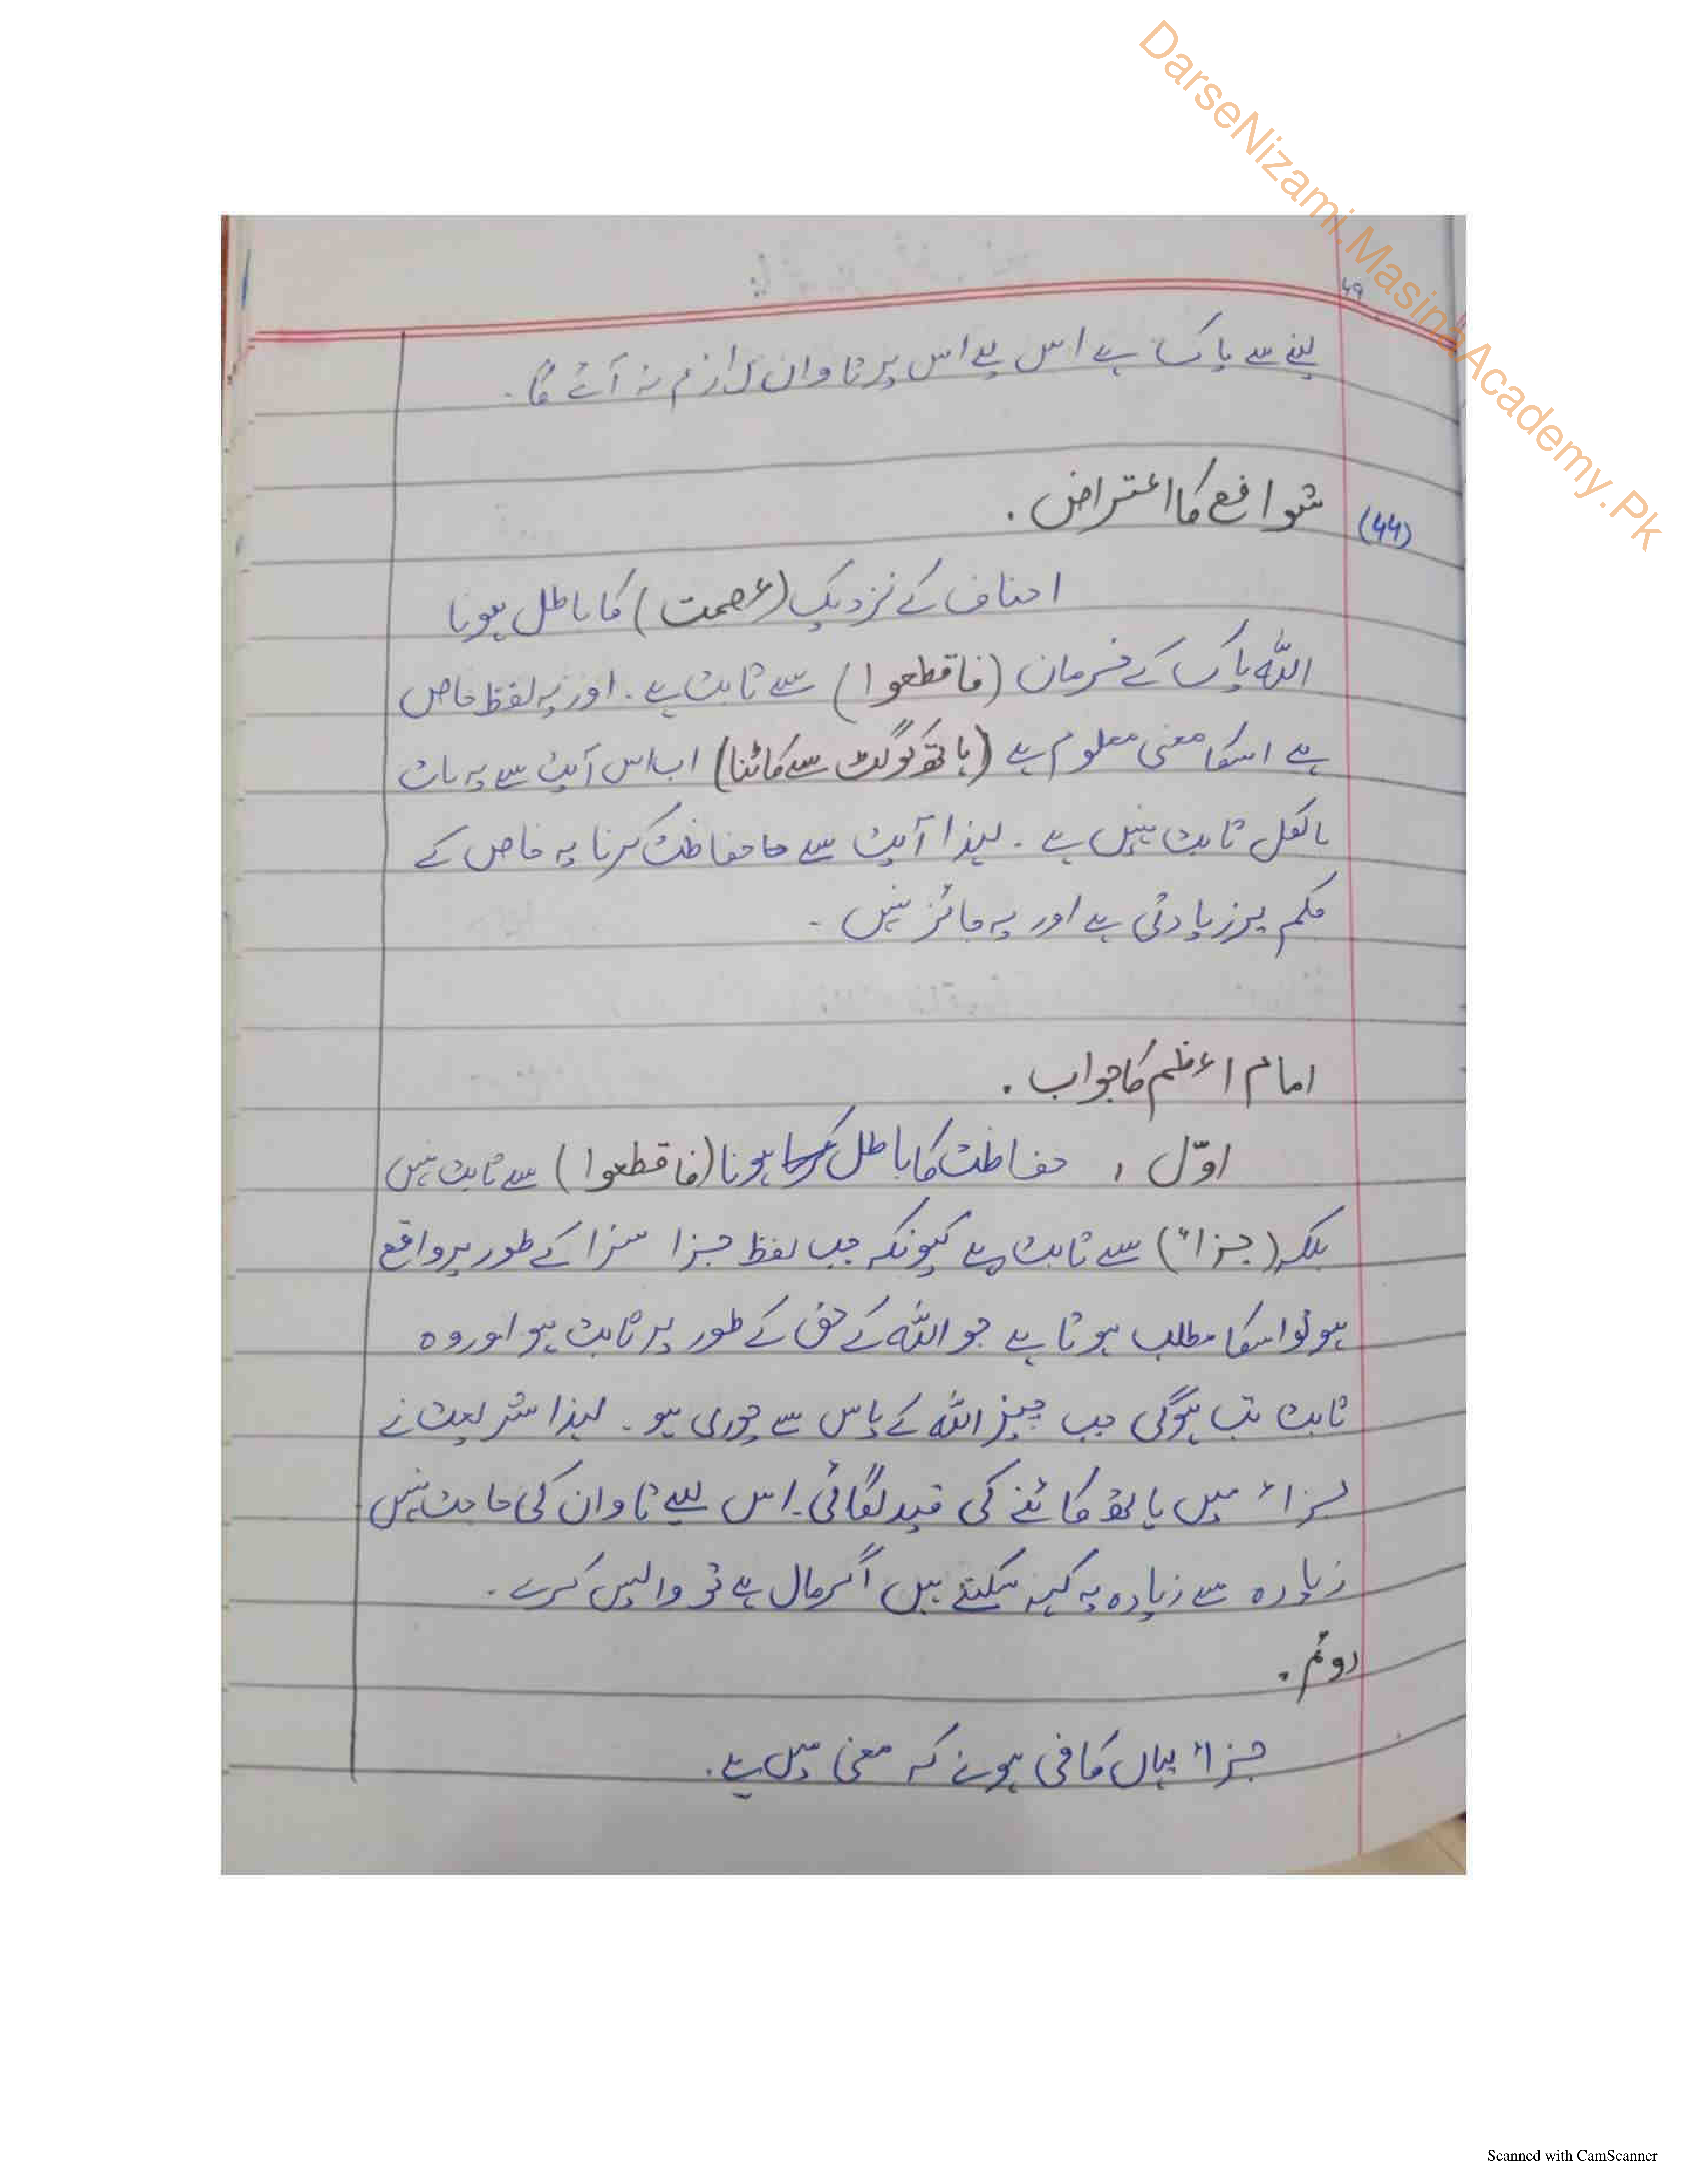 DarseNizami.MasinaAcademy.Pk
49
لینے سے پاک ہے اس لیے اس پر تاوان لازم نہ آئے گا۔
(44) شوافع کا اعتراض .
احناف کے نزدیک (عصمت) کا باطل ہونا
اللہ پاک کے فرمان (فاقطعوا) سے ثابت ہے۔ اور یہ لفظ خاص
ہے اسکا معنی معلوم ہے (ہاتھ کو گٹ سے کاٹنا) اب اس آیت سے یہ بات
بالکل ثابت نہیں ہے۔ لہذا آیت سے حفاظت کرنا یہ خاص کے
حکم پر زیادتی ہے اور یہ جائز نہیں ۔
امام اعظم کا جواب .
اوّل ، حفاظت کا باطل ہونا (فاقطعوا) سے ثابت نہیں
بلکہ (جزاءً) سے ثابت ہے کیونکہ جب لفظ جزا سزا کے طور پر واقع
ہو تو اسکا مطلب ہوتا ہے جو اللہ کے حق کے طور پر ثابت ہو اور وہ
ثابت تب ہوگی جب چیز اللہ کے پاس سے چوری ہو۔ لہذا شریعت نے
جزاء میں ہاتھ کاٹنے کی قید لگائی۔ اس لیے تاوان کی حاجت نہیں
زیادہ سے زیادہ یہ کہہ سکتے ہیں اگر مال ہے تو واپس کرے۔
دوئم .
جزاء یہاں کافی ہونے کہ معنی میں ہے۔
Scanned with CamScanner